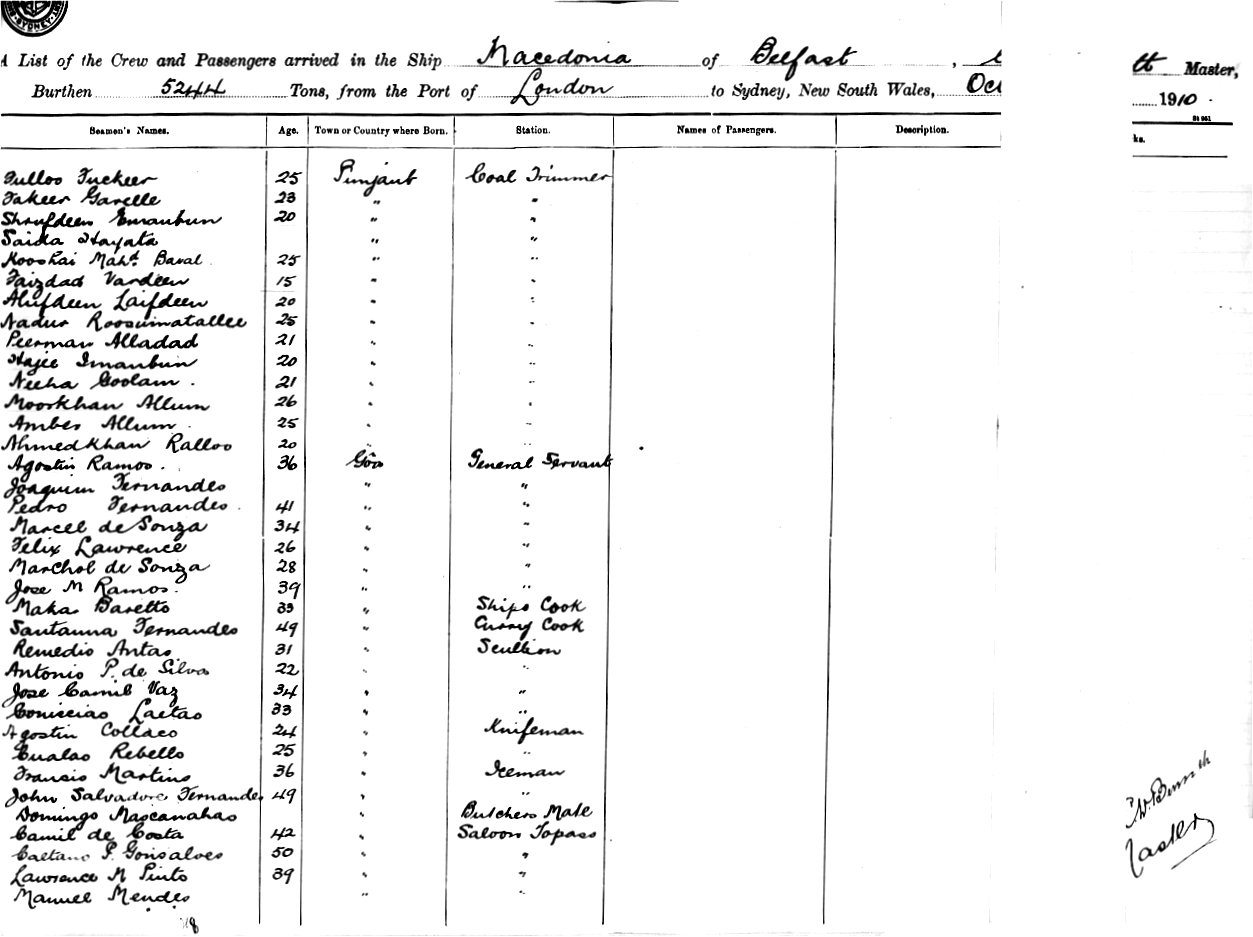 SYDNEY
A List of the Crew and Passengers arrived in the Ship Macedonia of Belfast, tt Master,
Burthen 5244 Tons, from the Port of London to Sydney, New South Wales, Oct 1910.
St 961
Seamen's Names. Age. Town or Country where Born. Station. Names of Passengers. Description. ks.
Fulloo Fuckeer 25 Punjaub Coal Trimmer
Fakeer Garelle 23 " "
Shrufdeen Emanbun 20 " "
Saida Hayata " "
Kooshai Maht. Baral 25 " "
Faizdad Vardeen 15 " "
Alifdeen Laifdeen 20 " "
Nadur Roosumatallee 25 " "
Peerman Alladad 21 " "
Hajee Imanbun 20 " "
Neeha Goolam. 21 " "
Moorkhan Allum 26 " "
Amber Allum. 25 " "
Ahmedkhan Ralloo 20 " "
Agostin Ramos. 36 Goa General Servant
Joaquim Fernandes " "
Pedro Fernandes. 41 " "
Marcel de Sonza 34 " "
Felix Lawrence 26 " "
Marchol de Sonza 28 " "
Jose M Ramos. 39 " "
Maka Baretto 33 " Ships Cook
Santanna Fernandes 49 " Curry Cook
Remedio Antao 31 " Scullion
Antonio P. de Silva 22 " "
Jose Camil Vaz 34 " "
Coniciao Laetao 33 " "
Agostin Collaco 24 " Knifeman
Cualao Rebello 25 " "
Francis Martins 36 " Iceman
John Salvadore Fernandes 49 " "
Domingo Mascanahas " Butchers Mate
Camil de Costa 42 " Saloon Topass
Caetano P. Gonsalves 50 " "
Lawrence M Pinto 39 " "
Manuel Mendes " "
Master